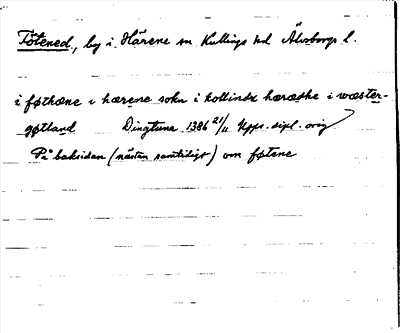 Fötened, by i Härene sn Kullings hd Älvsborgs l.
i føthæne i hærene sokn i kollindx hæræthe i wæster-
gøtland Dingtuna 1386 21/11 Upps. dipl. orig
På baksidan (nästan samtidigt) om føtene